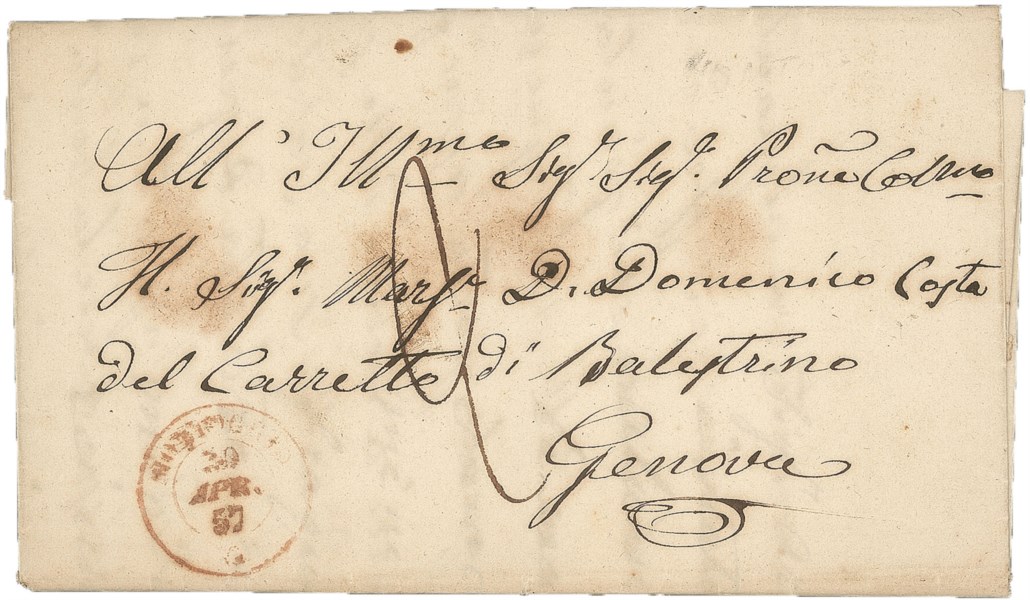 All' Ill.mo Sig.r Sig.r Prõne Col.mo
Il Sig.r March.e D. Domenico Costa
del Carretto di Balestrino
Genova
2
APR.
57